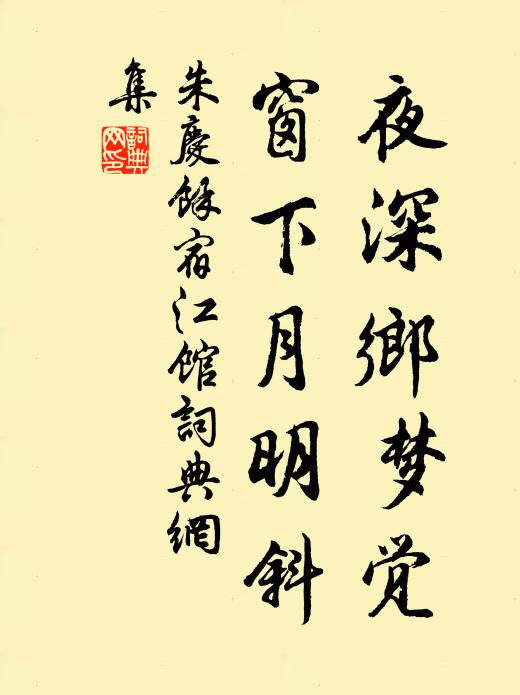 夜深鄉梦觉
窗下月明斜
朱慶餘宿江馆詞典網
集
詞典
网印